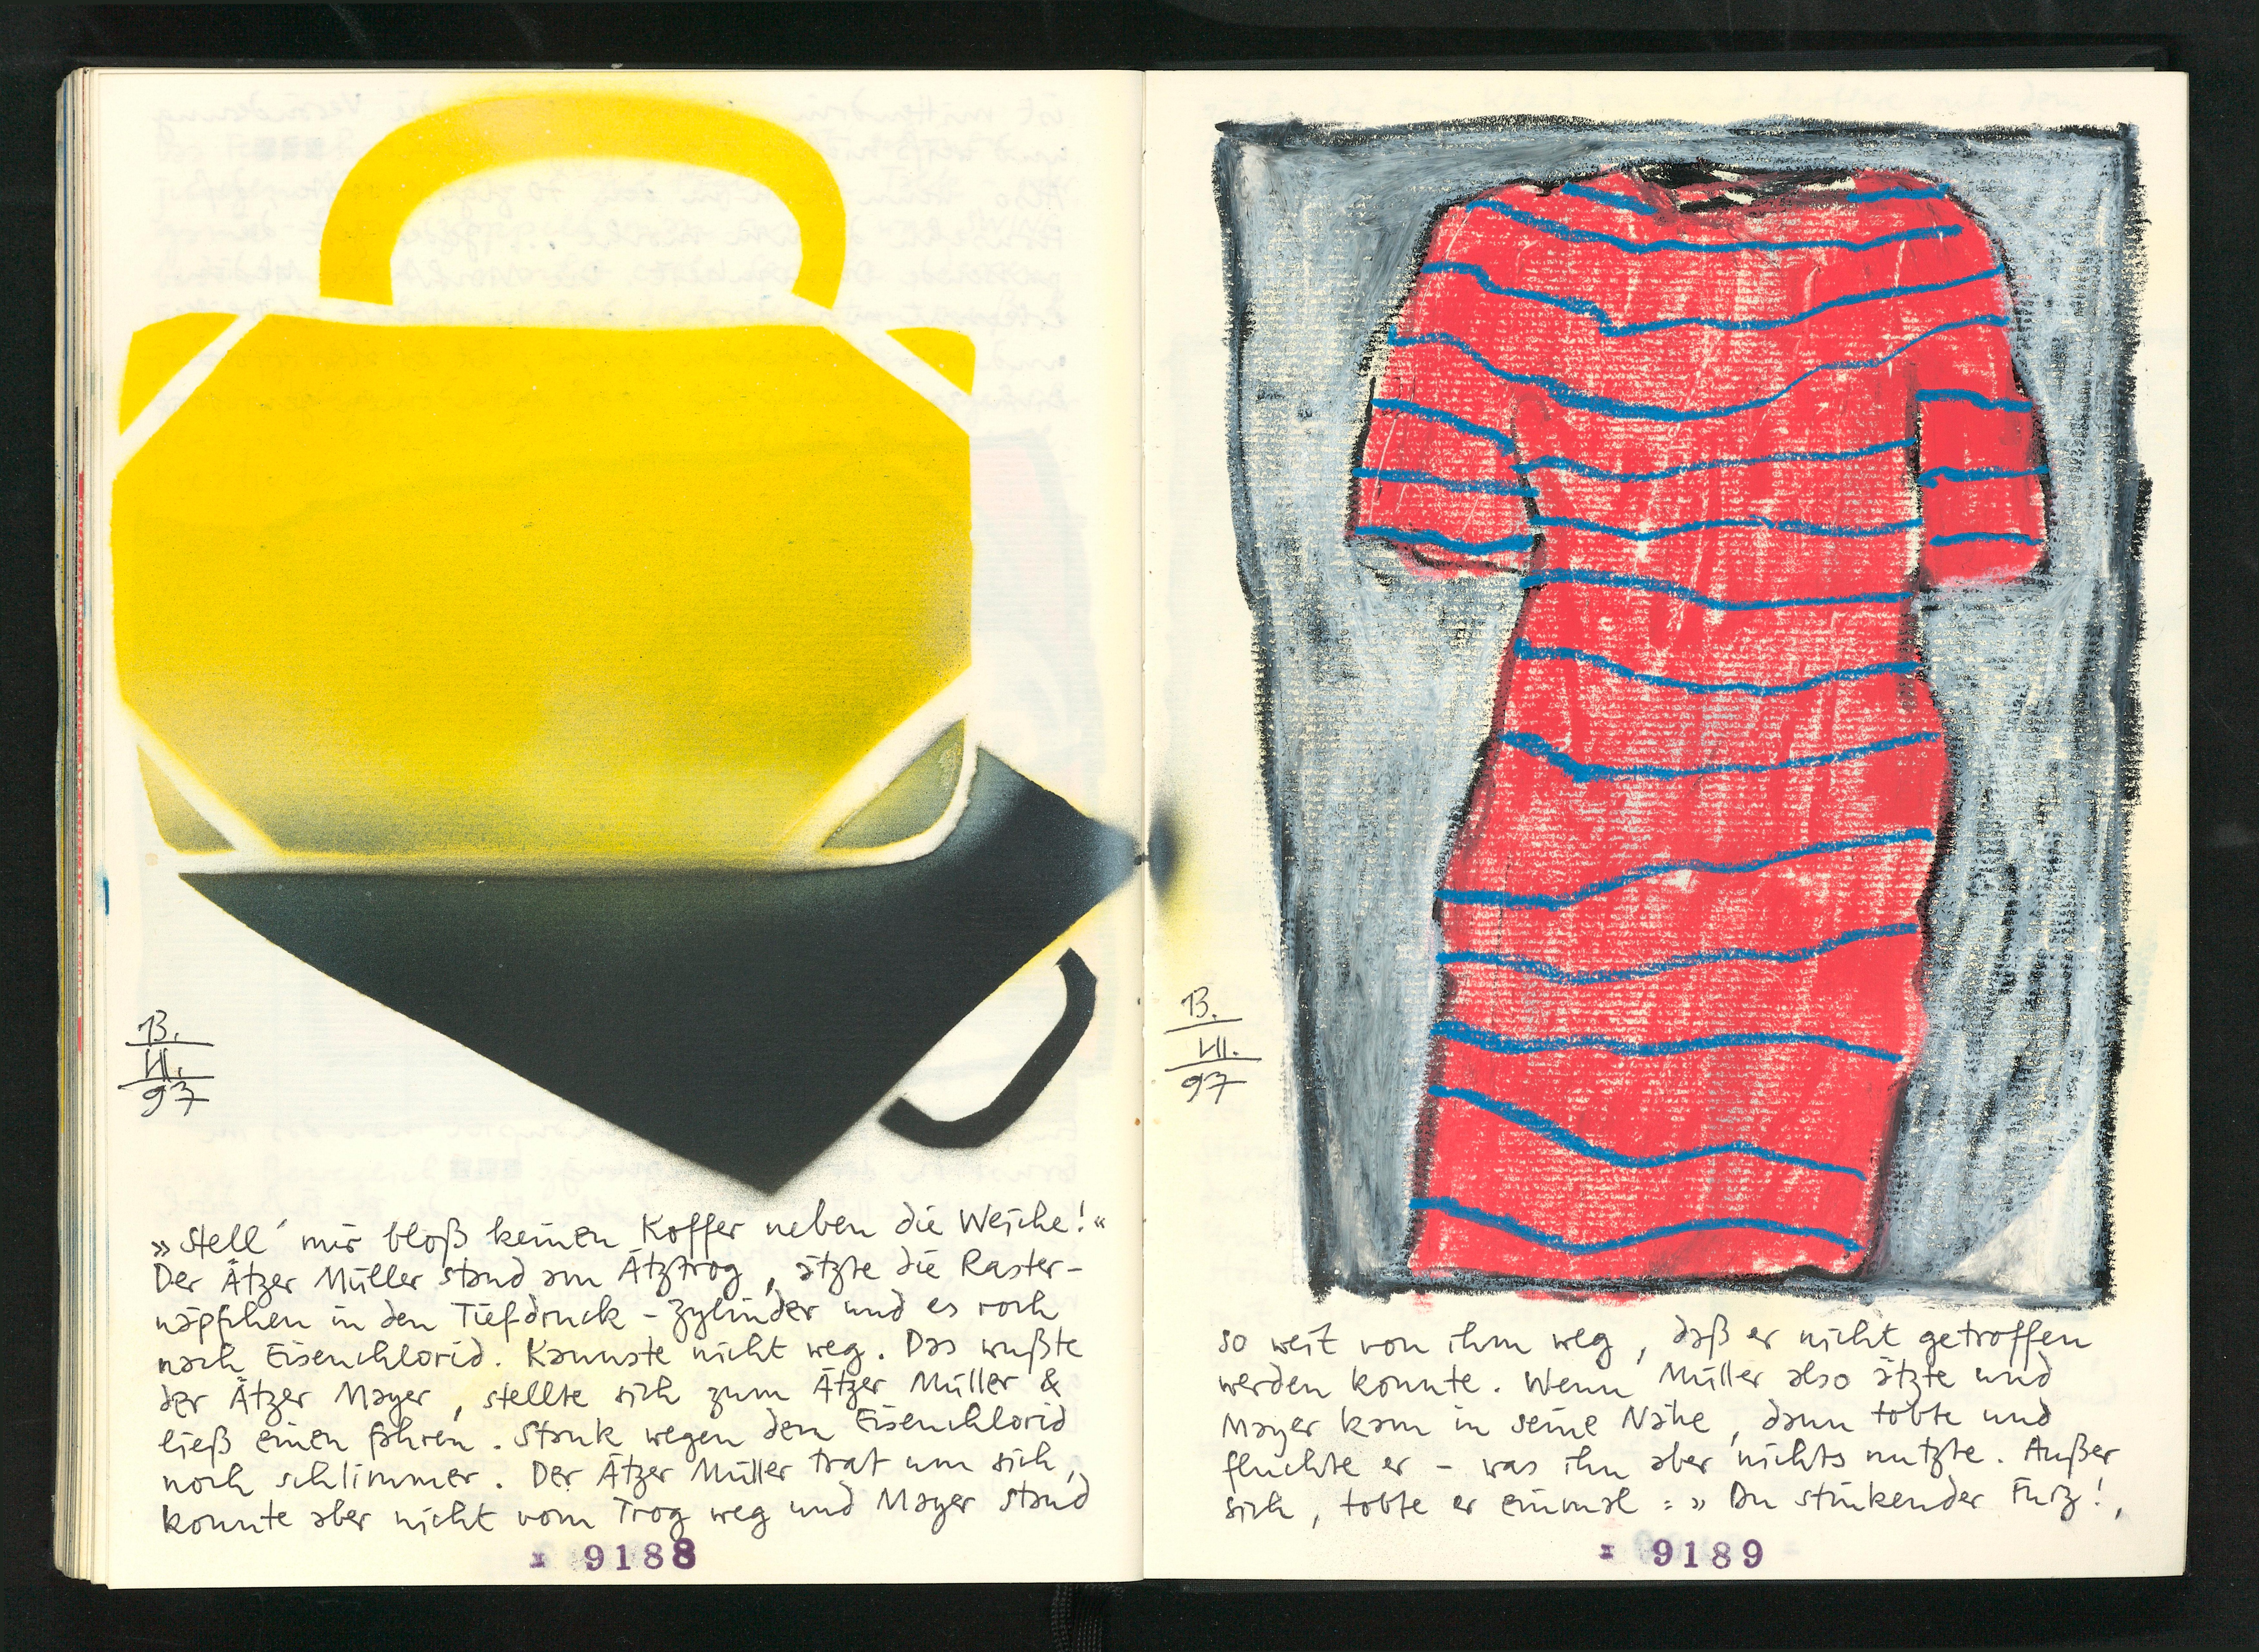 13.
VII.
97
»Stell' mir bloß keinen Koffer neben die Weiche!«
Der Ätzer Müller stand am Ätztrog, ätzte die Raster-
näpfchen in den Tiefdruck-Zylinder und es roch
nach Eisenchlorid. Konnte nicht weg. Das wußte
der Ätzer Mayer, stellte sich zum Ätzer Müller &
ließ einen fahren. Stank wegen dem Eisenchlorid
noch schlimmer. Der Ätzer Müller trat um sich,
konnte aber nicht vom Trog weg und Mayer stand
x 9188
13.
VII.
97
so weit von ihm weg, daß er nicht getroffen
werden konnte. Wenn Müller also ätzte und
Mayer kam in seine Nähe, dann tobte und
fluchte er – was ihm aber nichts nutzte. Außer
sich, tobte er einmal: »Du stinkender Furz!,
x 9189